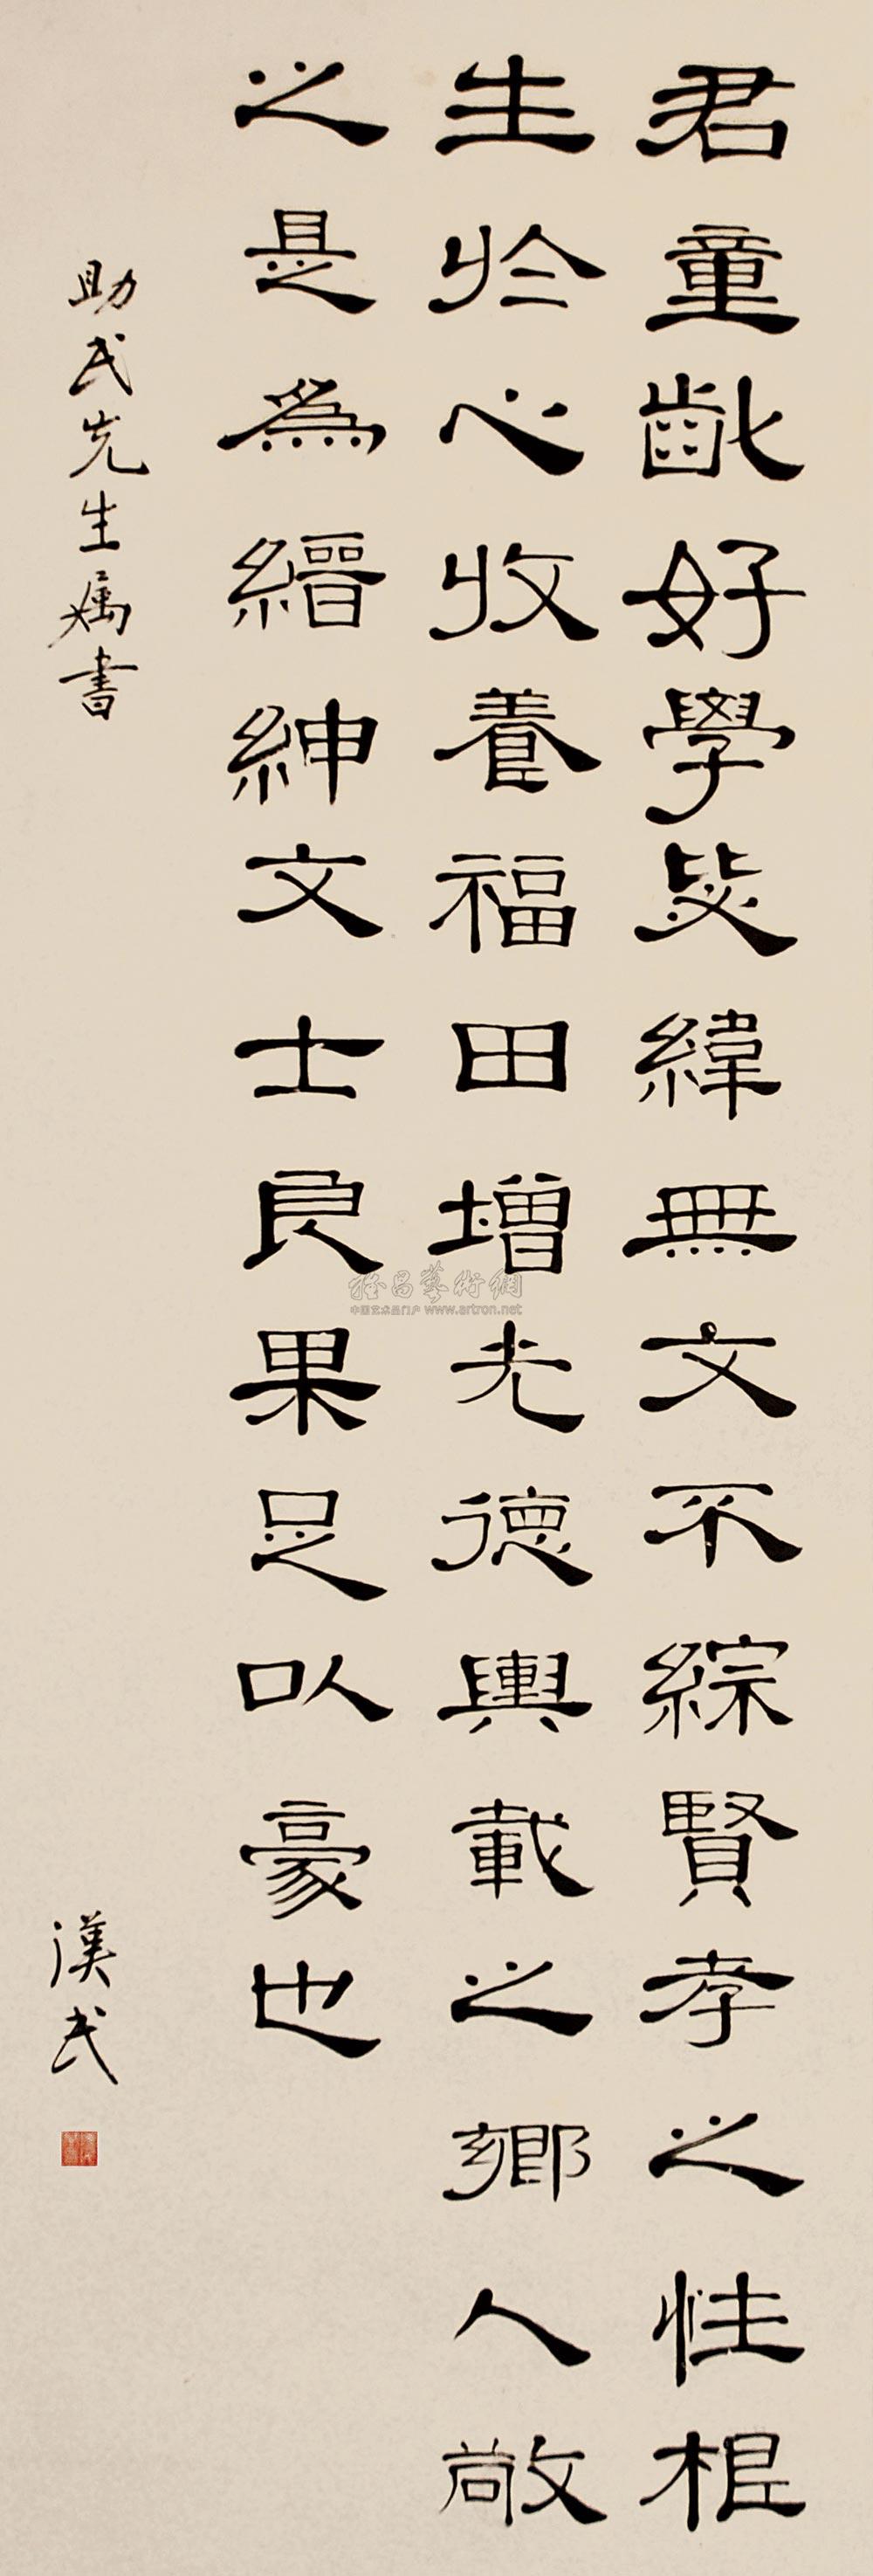 君童齔好學毖緯無文不綜賢孝之性根
生於心收養福田增光德輿載之鄉人敬
之是為縉紳文士良果足以豪也
助民先生属書
漢民
雅昌藝術網
中国艺术品门户 www.artron.net